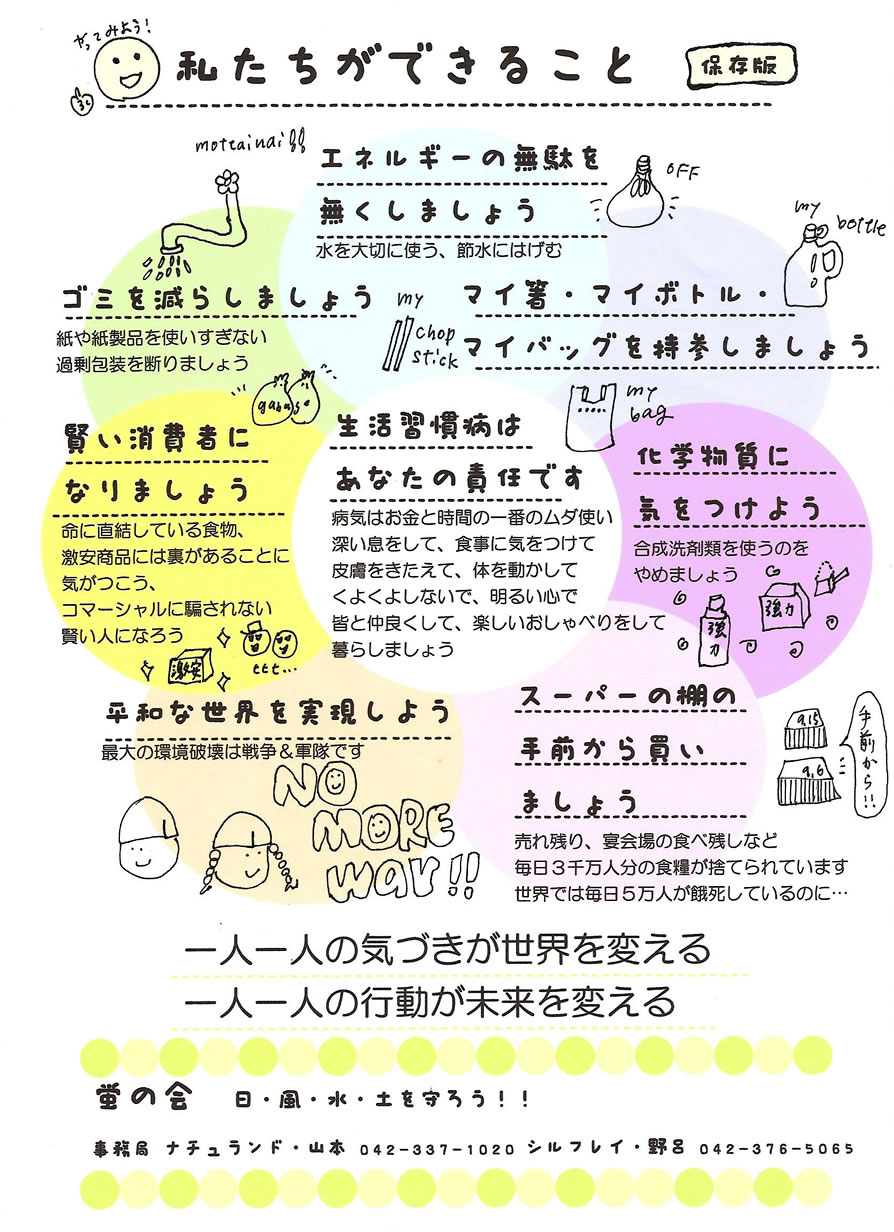 やってみよう!
私たちができること
保存版
mottainai!!
エネルギーの無駄を
無くしましょう
水を大切に使う、節水にはげむ
OFF
my bottle
ゴミを減らしましょう
紙や紙製品を使いすぎない
過剰包装を断りましょう
my
chop
stick
マイ箸・マイボトル・
マイバッグを持参しましょう
my
bag
賢い消費者に
なりましょう
命に直結している食物、
激安商品には裏があることに
気がつこう、
コマーシャルに騙されない
賢い人になろう
激安
生活習慣病は
あなたの責任です
病気はお金と時間の一番のムダ使い
深い息をして、食事に気をつけて
皮膚をきたえて、体を動かして
くよくよしないで、明るい心で
皆と仲良くして、楽しいおしゃべりをして
暮らしましょう
化学物質に
気をつけよう
合成洗剤類を使うのを
やめましょう
強力
強力
平和な世界を実現しよう
最大の環境破壊は戦争&軍隊です
NO
MORE
war!!
スーパーの棚の
手前から買い
ましょう
9,15
9,6
手前から!!
売れ残り、宴会場の食べ残しなど
毎日3千万人分の食糧が捨てられています
世界では毎日5万人が餓死しているのに…
一人一人の気づきが世界を変える
一人一人の行動が未来を変える
蛍の会 日・風・水・土を守ろう!!
事務局 ナチュランド・山本 042-337-1020 シルフレイ・野呂 042-376-5065